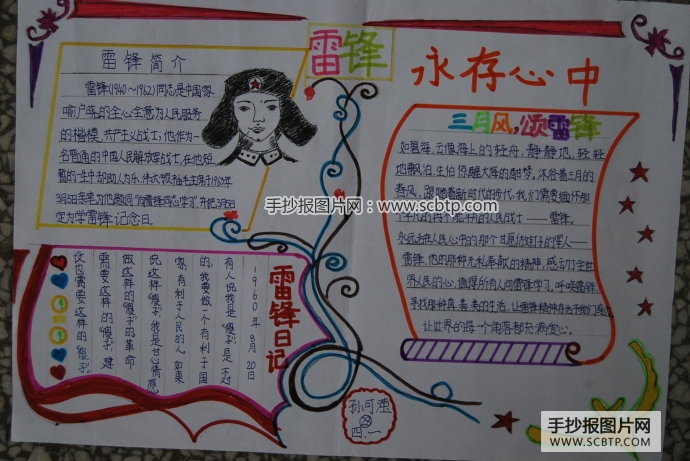 雷锋
永存心中
雷锋简介
雷锋(1940~1962)同志是中国家
喻户晓的全心全意为人民服务
的楷模,共产主义战士;他作为一
名普通的中国人民解放军战士,在他短
暂的一生中却助人为乐,伟大领袖毛主席于1963年
3月5日亲笔为他题词“向雷锋同志学习”并把3月5日
定为学雷锋记念日。
三月风,颂雷锋
如碧海,云像海上的轻舟,静静地,轻轻
地飘泊,生怕惊醒大海的甜梦。沐浴着三月的
春风,踏着新时代的步伐,我们需要缅怀那
个平凡的再不平凡的人民战士——雷锋。
永远活在人民心中的那个甘愿做钉子的军人——
雷锋,他的那种无私奉献的精神,感动了全世
界人民的心,值得所有人向雷锋学习,呼唤雷锋,
寻找那种真善美的生活,让雷锋精神存活于我们身边,
让世界的每一个角落都充满爱心。
手抄报图片网:www.scbtp.com
雷锋日记
1960年8月20日
有人说我是“傻子”,是不对
的。我要做一个有利于国
家,有利于人民的人。如果
说这样“傻子”,我是甘心情愿
做这样的“傻子”的,革命
需要这样的“傻子”,建
设也需要这样的“傻子”。
孙可滢
四、一
手抄报图片网
WWW.SCBTP.COM